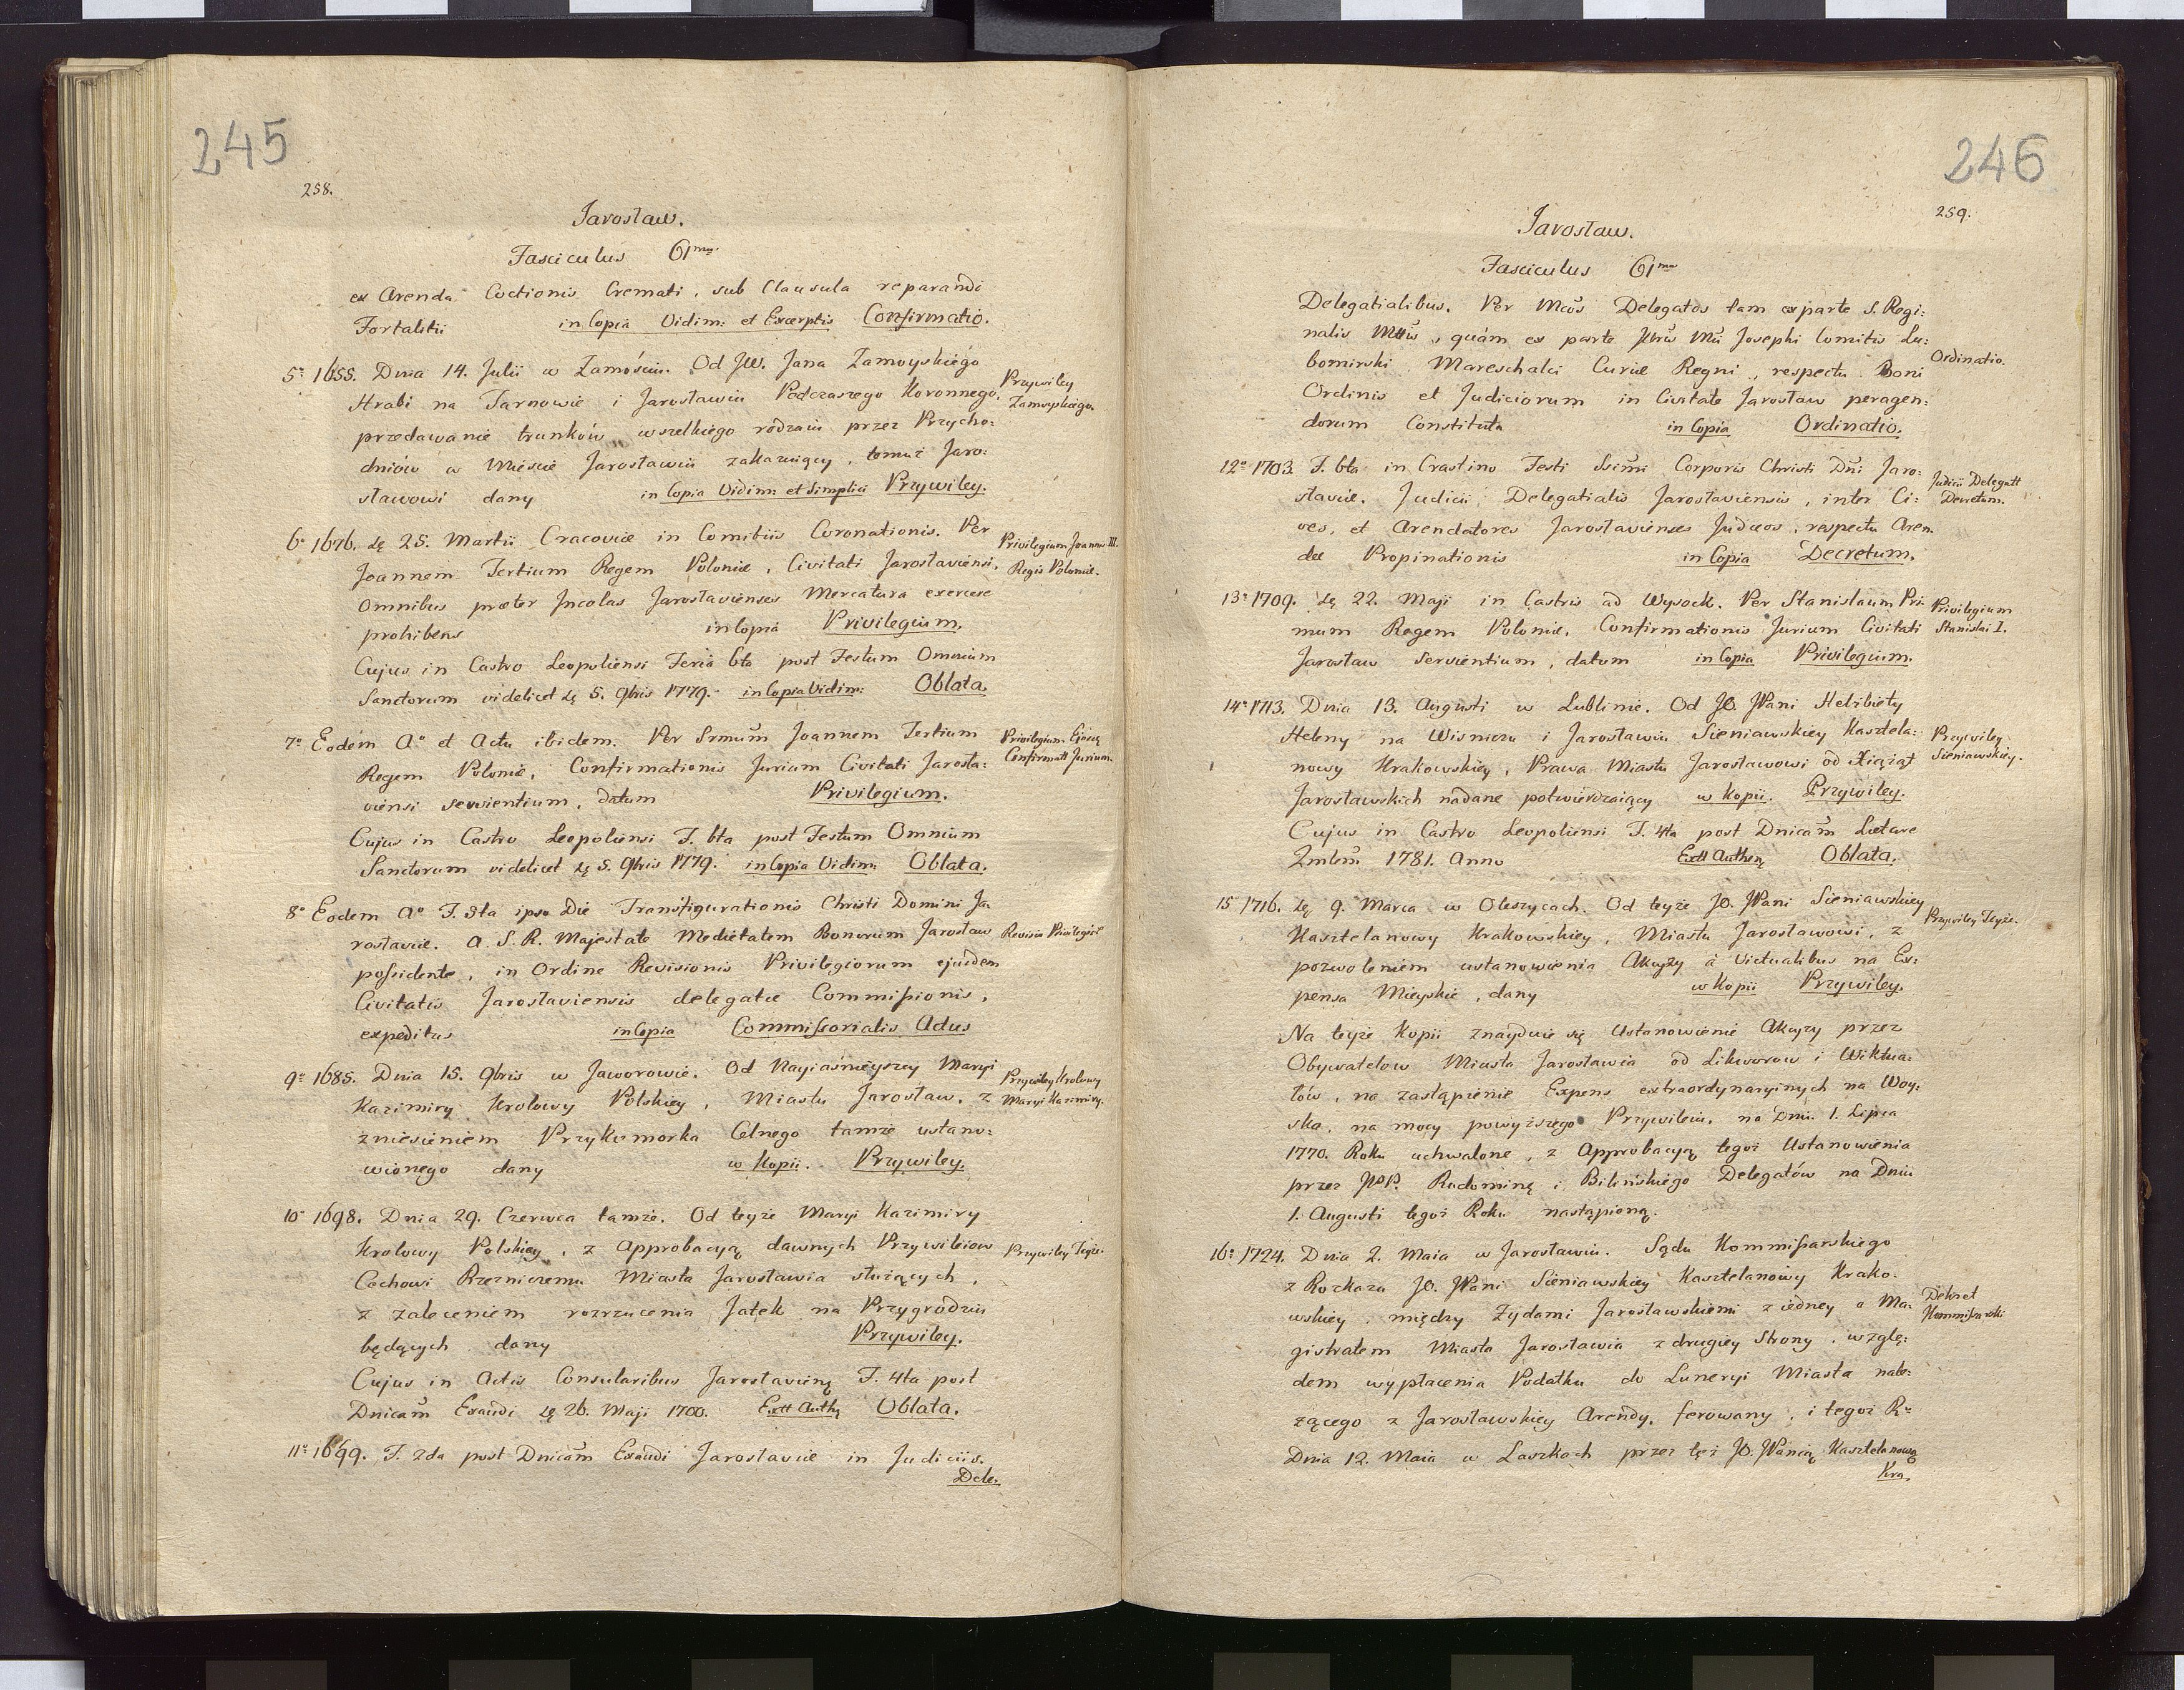 245
258.
Jarosław.
Fasciculus 61mus.
ex Arenda Coctionis Cremati, sub Clausula reparandi
Fortalitii in Copia Vidim: et Excerptis Confirmatio.
5º 1655. Dnia 14. Julii w Zamościu. Od JW. Jana Zamoyskiego
Hrabi na Tarnowie i Jarosławiu Podczaszego Koronnego,
przedawanie trunków wszelkiego rodzaiu przez Przycho:
dniów w Mieście Jarosławiu zakazuiący, temuż Jaro:
sławowi dany in Copia Vidim: et Simplici Przywiley.
Przywiley
Zamoyskiego.
6º 1676. dę 25. Martii Cracoviæ in Comitiis Coronationis. Per
Joannem Tertium Regem Poloniæ, Civitati Jaroslaviensi,
Omnibus præter Incolas Jaroslavienses Mercatura exercere
prohibens in Copia Privilegium.
Privilegium Joannis III.
Regis Poloniæ.
Cujus in Castro Leopoliensi Feria 6ta post Festum Omnium
Sanctorum videlicet dę 5. 9bris 1779. in Copia Vidim: Oblata.
7º Eodem Aº et Actu ibidem. Per Srmum Joannem Tertium
Regem Poloniæ, Confirmationis Jurium Civitati Jarosla:
viensi servientium, datum Privilegium.
Privilegium Ejusdę
Confirmatt Jurium.
Cujus in Castro Leopoliensi F. 6ta post Festum Omnium
Sanctorum videlicet dę 5. 9bris 1779. in Copia Vidim: Oblata.
8º Eodem Aº F. 3ta ipso Die Transfigurationis Christi Domini Ja:
roslaviæ. A S. R. Majestate Medietatem Bonorum Jarosław
possidente, in Ordine Revisionis Privilegiorum ejusdem
Civitatis Jaroslaviensis delegatæ Commissionis,
expeditus in Copia Commissorialis Actus
Revisio Privilegior
9º 1685. Dnia 15. 9bris w Jaworowie. Od Nayiaśnieyszey Maryi
Kazimiry Krolowy Polskiey, Miastu Jarosław, z
zniesieniem Przykomorka Celnego tamże ustano:
wionego dany w Kopii. Przywiley.
Przywiley Krolowy
Maryi Kazimiry.
10º 1698. Dnia 29. Czerwca tamże. Od teyże Maryi Kazimiry
Krolowy Polskiey, z Approbacyą dawnych Przywileiow
Cechowi Rzezniczemu Miasta Jarosławia służących,
z zaleceniem rozrzucenia Jatek na Przygrodziu
będących dany Przywiley.
Przywiley Teyże.
Cujus in Actis Consularibus Jaroslavienę F. 4ta post
Dnicam Exaudi dę 26. Maji 1700. Extt Authę Oblata.
11º 1699. F. 2da post Dnicam Exaudi Jaroslaviæ in Judiciis.
Dele:
246
259.
Jarosław.
Fasciculus 61mus
Delegatialibus. Per Mcos Delegatos tam ex parte S. Regi:
nalis Mttis, quám ex parte Illris Mci Josephi Comitis Lu:
bomirski Mareschalci Curiæ Regni, respectu Boni
Ordinis et Judiciorum in Civitate Jarosław peragen:
dorum Constituta in Copia Ordinatio.
Ordinatio.
12º 1703. F. 6ta in Crastino Festi Ssimi Corporis Christi Dni Jaro:
slaviæ. Judicii Delegatialis Jaroslaviensis, inter Ci:
ves, et Arendatores Jaroslavienses Judæos, respectu Aren:
dæ Propinationis in Copia Decretum.
Judicii Delegatt
Decretum.
13º 1709. dę 22. Maji in Castris ad Wysock. Per Stanislaum Pri:
mum Regem Poloniæ, Confirmationis Jurium Civitati
Jarosław Servientium, datum in Copia Privilegium.
Privilegium
Stanislai I.
14º 1713. Dnia 13. Augusti w Lublinie. Od JO. JPani Helżbiety
Heleny na Wiśniczu i Jarosławiu Sieniawskiey Kasztela:
nowy Krakowskiey, Prawa Miastu Jarosławowi od Xiążąt
Jarosławskich nadane potwierdzaiący w Kopii. Przywiley.
Przywiley
Sieniawskiey.
Cujus in Castro Leopoliensi F. 4ta post Dnicam Lætare
Qmlem 1781. Anno Extt Authenę Oblata.
15 1716. dę 9. Marca w Oleszycach. Od teyże JO. JPani Sieniawskiey
Kasztelanowy Krakowskiey, Miastu Jarosławowi, z
pozwoleniem ustanowienia Akcyzy à Victualibus na Ex:
pensa Mieyskie, dany w Kopii Przywiley.
Przywiley Teyże.
Na teyże Kopii znayduie się Ustanowienie Akcyzy przez
Obywatelow Miasta Jarosławia od Likworow i Wiktua:
łów, na zastąpienie Expens extraordynaryinych na Woy:
ska, na mocy powyższego Przywileiu, na Dniu 1. Lipca
1770. Roku uchwalone, z Approbacyą tegoż Ustanowienia
przez JPP. Radominę i Bilińskiego Delegatów na Dniu
1. Augusti tegoż Roku nastąpioną.
16º 1724. Dnia 2. Maia w Jarosławiu. Sądu Kommissarskiego
z Rozkazu JO. JPani Sieniawskiey Kasztelanowy Krako:
wskiey, między Żydami Jarosławskiemi z iedney a Ma:
gistratem Miasta Jarosławia z drugiey Strony, wzglę:
dem wypłacenia Podatku do Luneryi Miasta nale:
żącego z Jarosławskiey Arendy, ferowany, i tegoż Rº
Dnia 12. Maia w Laszkach przez tęż JO. JPanią Kasztelanową
Kra:
Dekret
Kommissarski